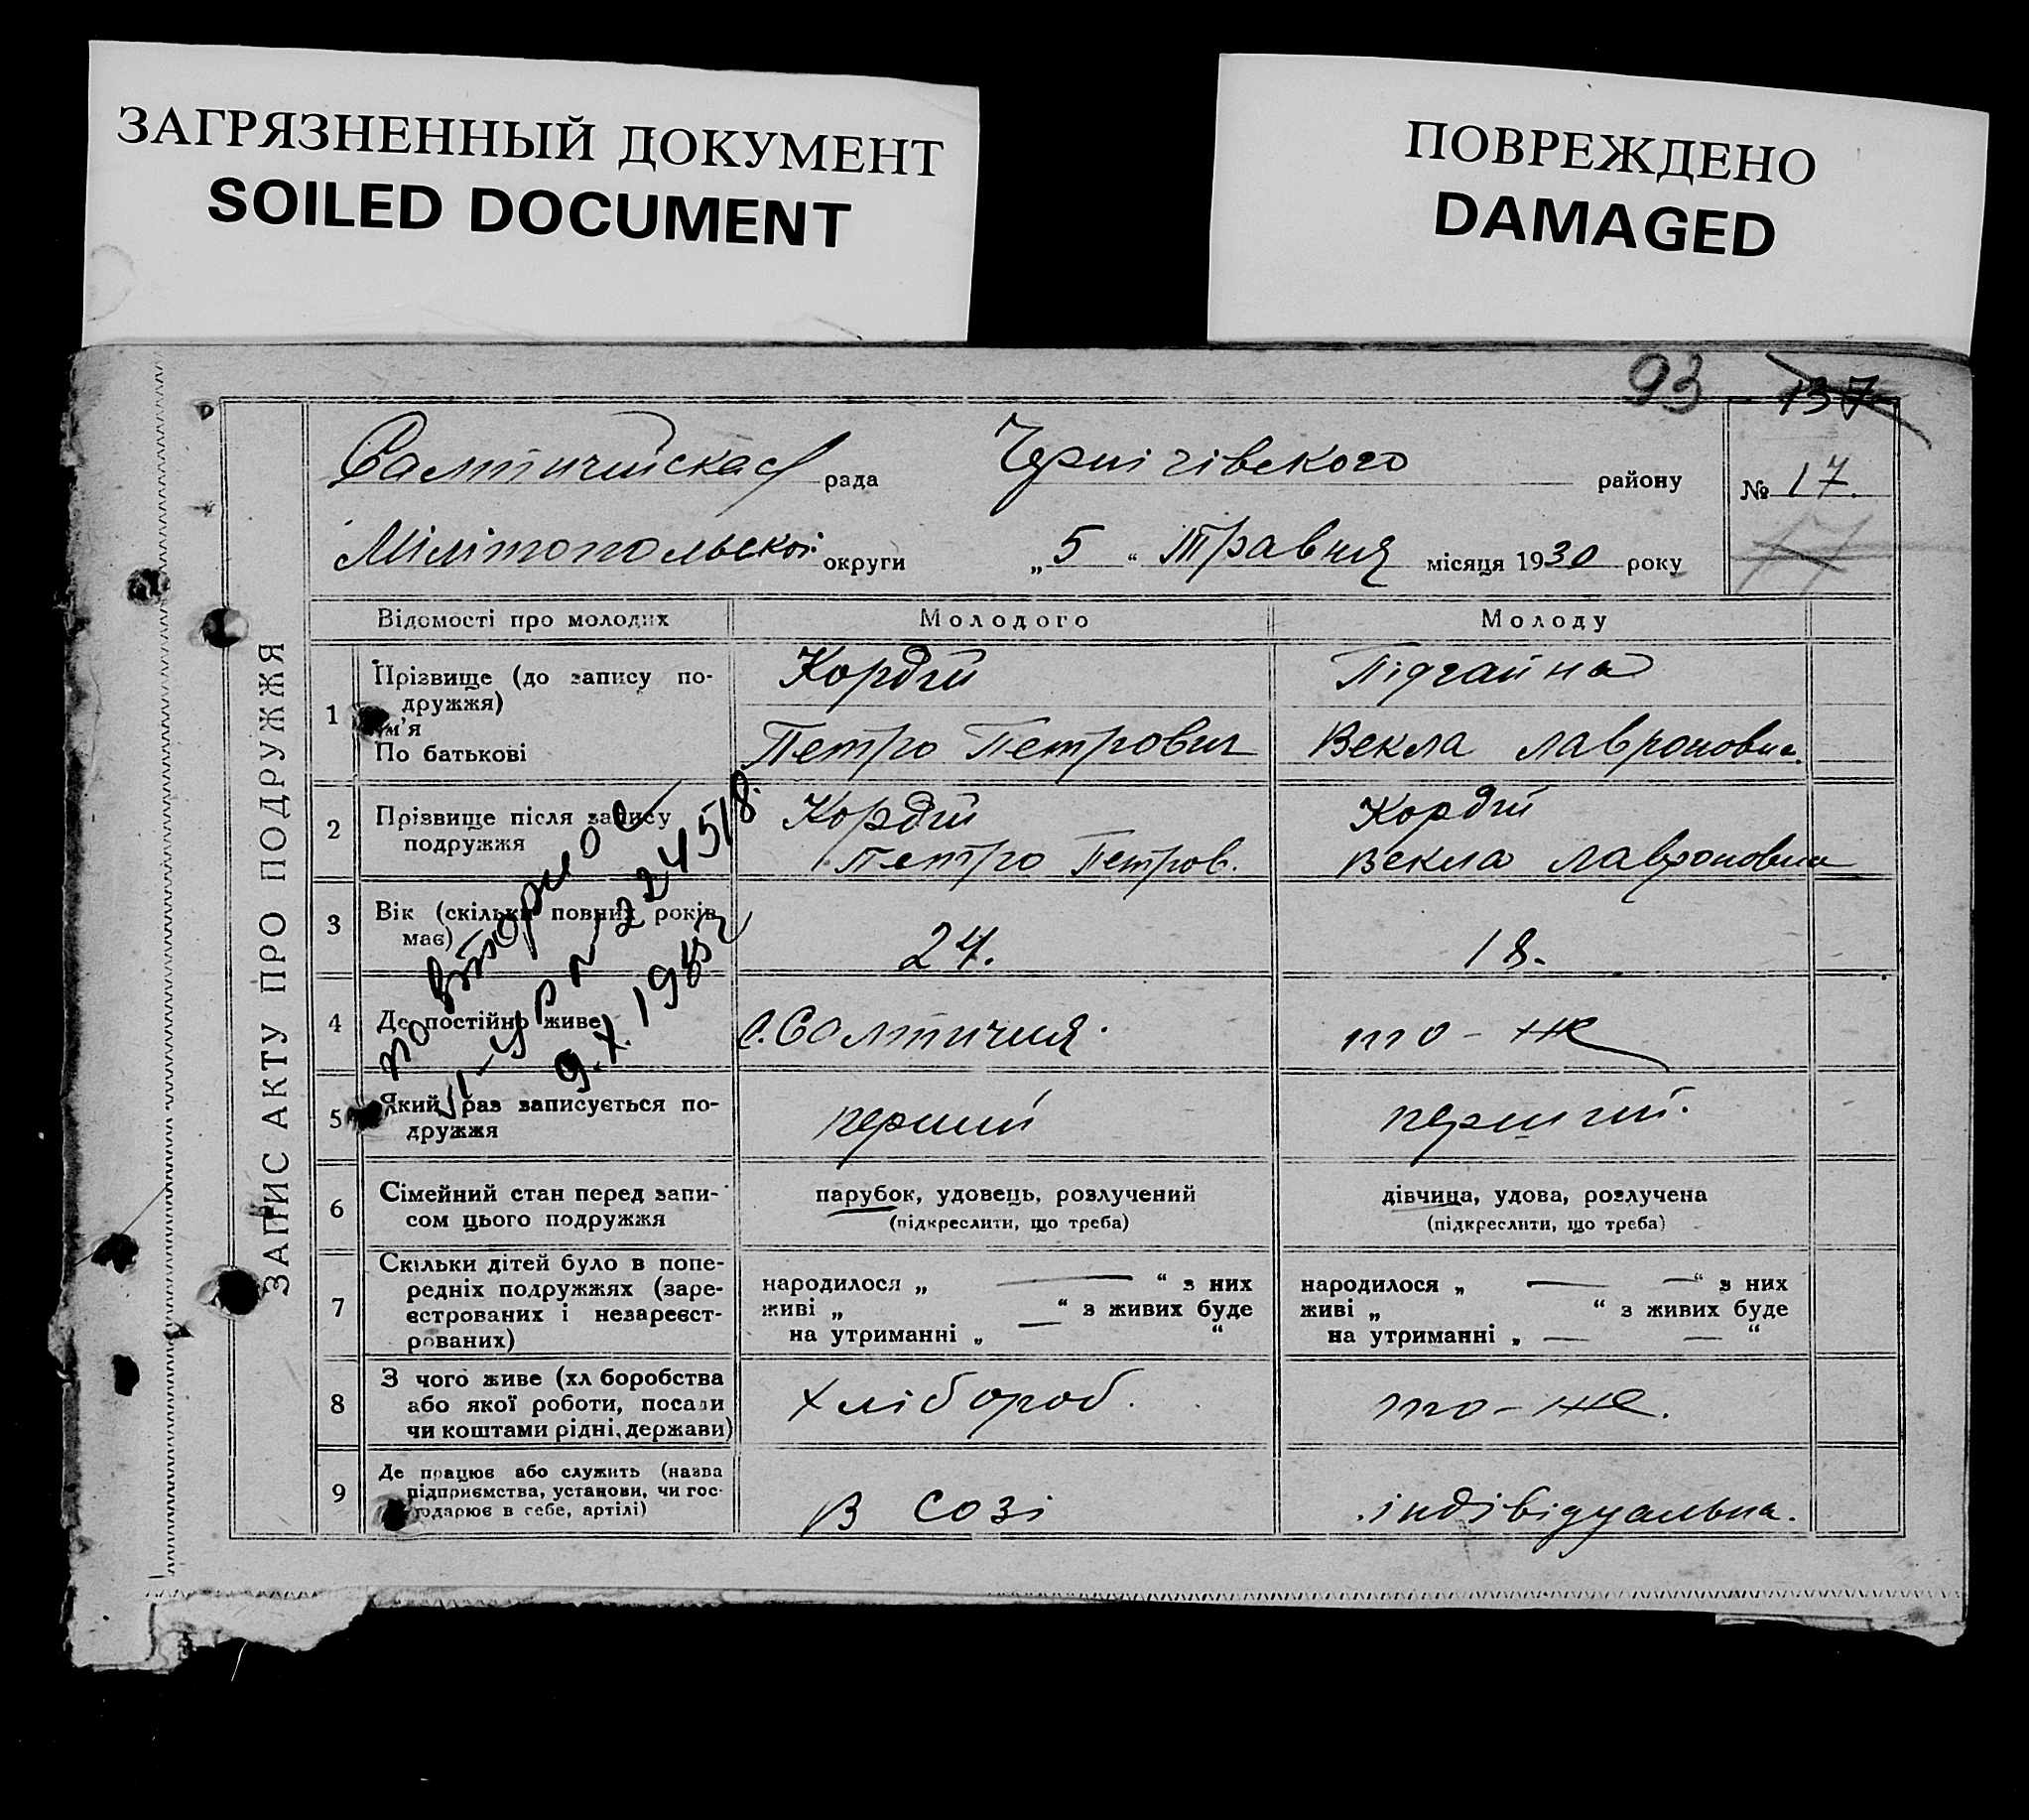 ЗАГРЯЗНЕННЫЙ ДОКУМЕНТ
SOILED DOCUMENT
ПОВРЕЖДЕНО
DAMAGED
93 137
ЗАПИС АКТУ ПРО ПОДРУЖЖЯ
Салтичийская рада Чернігівского району № 17.
Мілітопольскої округи „5“ Травня місяця 1930 року 17
Відомості про молодих Молодого Молоду
1 Прізвище (до запису по-
дружжя)
м'я
По батькові
Кордій
Петро Петрович
Підгайна
Векла Лавроновна.
2 Прізвище після запису
подружжя
Кордій
Петро Петров.
Кордій
Векла Лавроновна
3 Вік (скільки повних років
має)
24.
18.
4 Де постійно живе
с. Солтичия.
то-же
5 Який раз записується по-
дружжя
перший
перший.
повторное
II-УР № 224518.
9.X.198
6 Сімейний стан перед запи-
сом цього подружжя
парубок, удовець, розлучений
(підкреслити, що треба)
дівчина, удова, розлучена
(підкреслити, що треба)
7 Скільки дітей було в попе-
редніх подружжях (заре-
єстрованих і незареєст-
рованих)
народилося „ — “ з них
живі „ “ з живих буде
на утриманні „ — “
народилося „ — — “ з них
живі „ “ з живих буде
на утриманні „ — — “
8 З чого живе (хл боробства
або якої роботи, посади
чи коштами рідні, держави)
хлібороб.
то-же.
9 Де працює або служить (назва
підприємства, установи, чи гос-
подарює в себе, артілі)
в созі
індівідуальна.